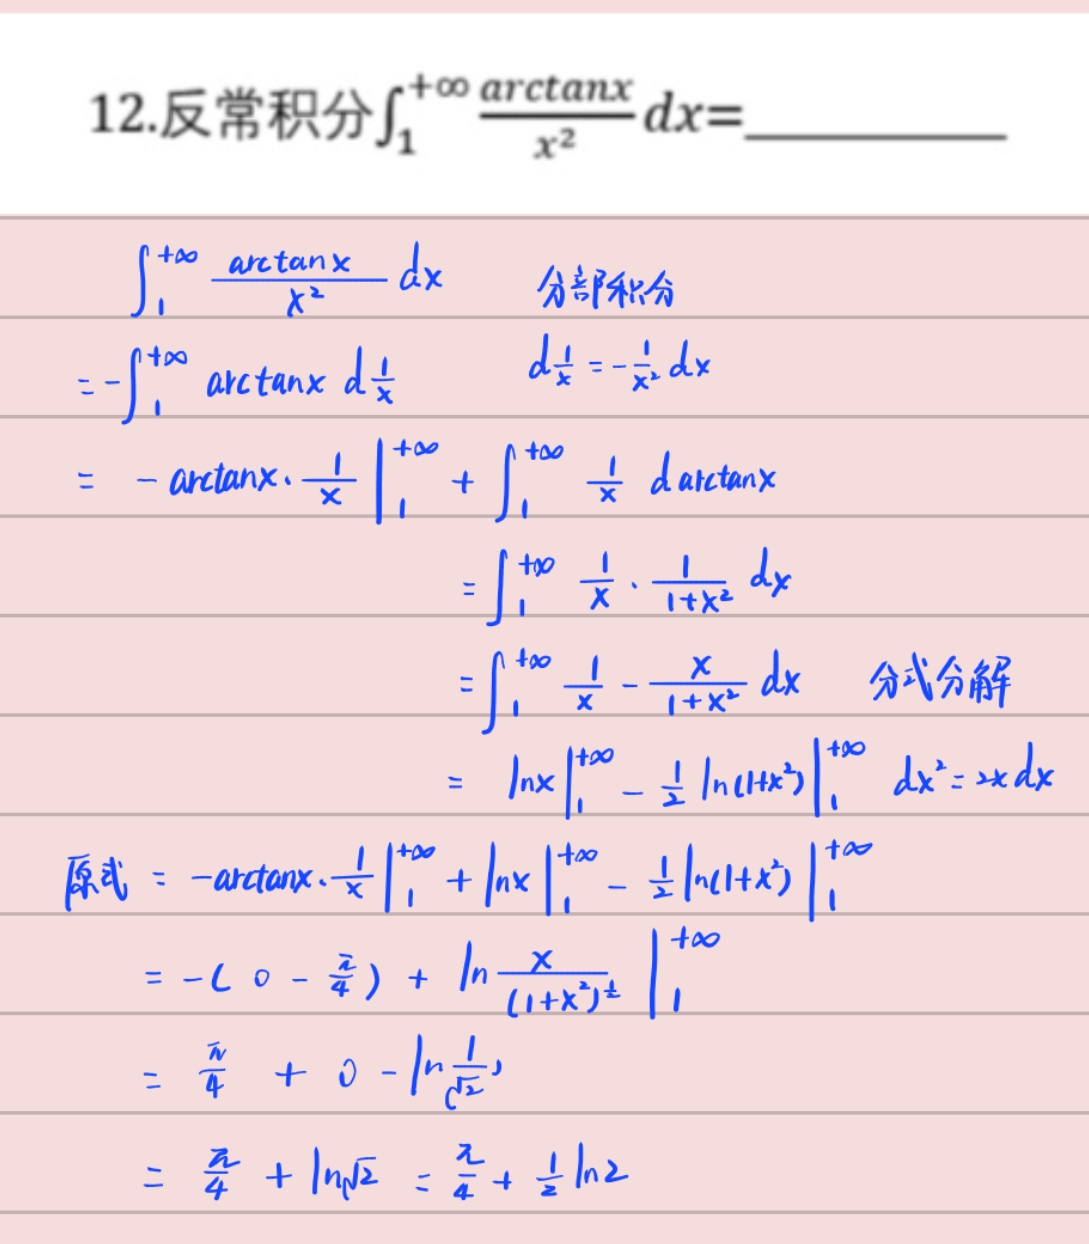 12.反常积分∫₁^{+∞} arctanx/x² dx=__________
∫₁^{+∞} arctanx/x² dx 分部积分
=-∫₁^{+∞} arctanx d1/x d1/x = -1/x² dx
= -arctanx·1/x |₁^{+∞} + ∫₁^{+∞} 1/x d arctanx
=∫₁^{+∞} 1/x · 1/(1+x²) dx
=∫₁^{+∞} 1/x - x/(1+x²) dx 分式分解
= lnx|₁^{+∞} - 1/2 ln(1+x²)|₁^{+∞} dx² = 2x dx
原式 = -arctanx·1/x |₁^{+∞} + lnx |₁^{+∞} - 1/2 ln(1+x²) |₁^{+∞}
= -(0 - π/4) + ln x/(1+x²)^{1/2} |₁^{+∞}
= π/4 + 0 - ln 1/(√2)
= π/4 + ln√2 = π/4 + 1/2 ln2